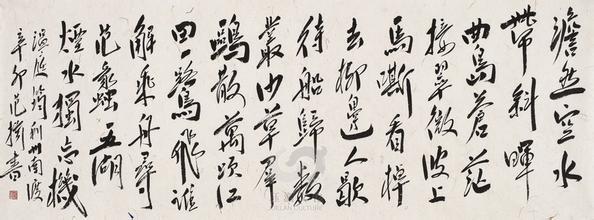 澹然空水
帶斜暉
曲島蒼茫
接翠微波上
馬嘶看棹
去柳邊人歇
待船歸數
叢沙草羣
鷗散萬頃江
田一鷺飛誰
解乘舟尋
范蠡五湖
煙水獨忘機
温庭筠利州南渡
辛卯范書